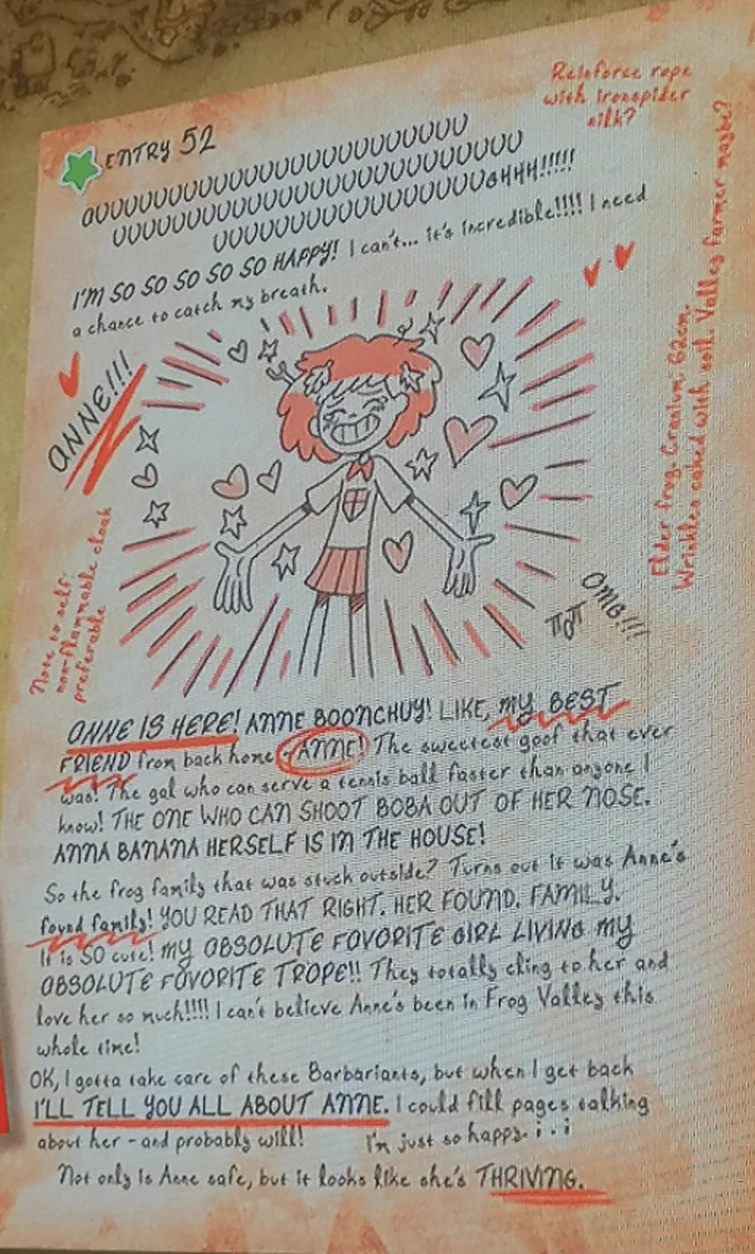 ENTRY 52
Reinforce rope
with ironspider
silk?
OUUUUUUUUUUUUUUUUUUUUUUUUUU
UUUUUUUUUUUUUUUUUUUUUUUUUUUU
UUUUUUUUUUUUUUUUUUUGHHH!!!!!
I'M SO SO SO SO SO HAPPY! I can't... it's incredible!!!! I need
a chance to catch my breath.
ANNE!!!
Elder frog. Cranium: 62cm.
Wrinkles caked with soil. Valley farmer maybe?
Note to self:
non-flammable cloak
preferable
OMG!!!
ANNE IS HERE! ANNE BOONCHUY! LIKE, MY BEST
FRIEND from back home - ANNE! The sweetest goof that ever
was! The gal who can serve a tennis ball faster than anyone I
know! THE ONE WHO CAN SHOOT BOBA OUT OF HER NOSE.
ANNA BANANA HERSELF IS IN THE HOUSE!
So the frog family that was stuck outside? Turns out it was Anne's
found family! YOU READ THAT RIGHT. HER FOUND. FAMILY.
It is SO cute! MY ABSOLUTE FAVORITE GIRL LIVING MY
ABSOLUTE FAVORITE TROPE!! They totally cling to her and
love her so much!!!! I can't believe Anne's been in Frog Valley this
whole time!
OK, I gotta take care of these Barbariants, but when I get back
I'LL TELL YOU ALL ABOUT ANNE. I could fill pages talking
about her - and probably will! I'm just so happy. i . i
Not only is Anne safe, but it looks like she's THRIVING.